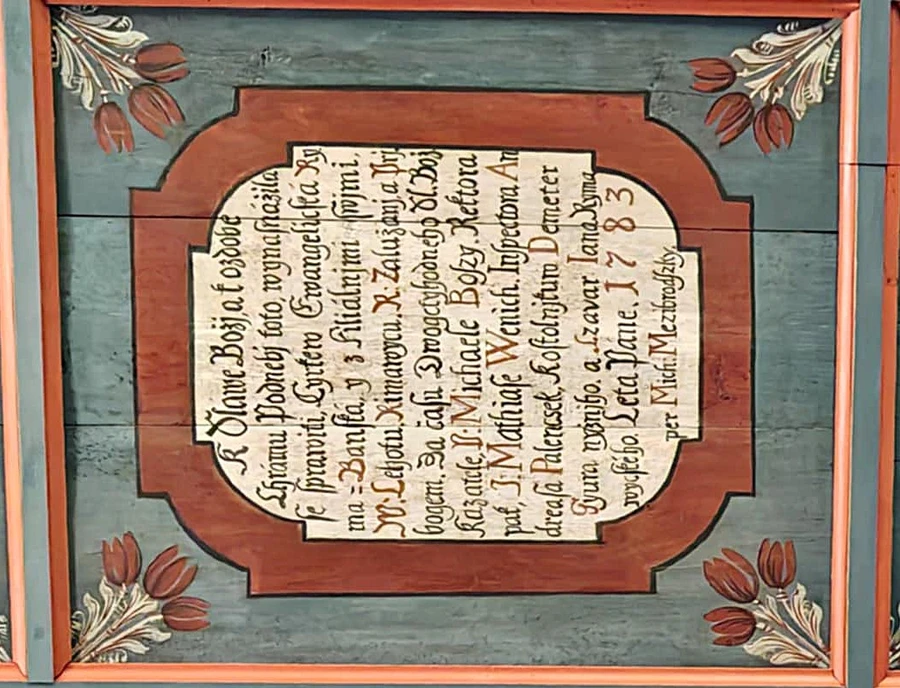 K Slawe Boží a k ozdobe
Chrámu Podnebj toto, wynasnažila
se sprawiti, Cyrkew Ewangelická Ry
ma=Banská, y z Filiálnjmi swými.
W. Lehotu. Rimawou. R. Zalužanj a Prj
bogem. Za času Dwogctyhodneho Sl. Božj
Kazatele, P: Michaele Bossy. Rektora
pak, J: Mathiasse Wenich. Inspectora An
dreasa Palencsek, Kostolnjkuw Demeter
Gyura nižnjho, a Lzavar Jana Ryma
wyssieho. Leta Páne. 1783
per Mich: Mezibrodszky.